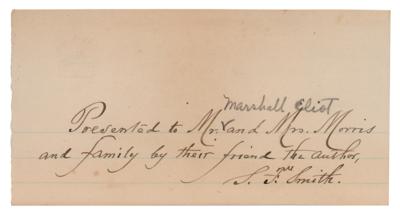 Marshall Eliot
Presented to Mr. and Mrs. Morris
and family by their friend the author,
S. F. Smith.